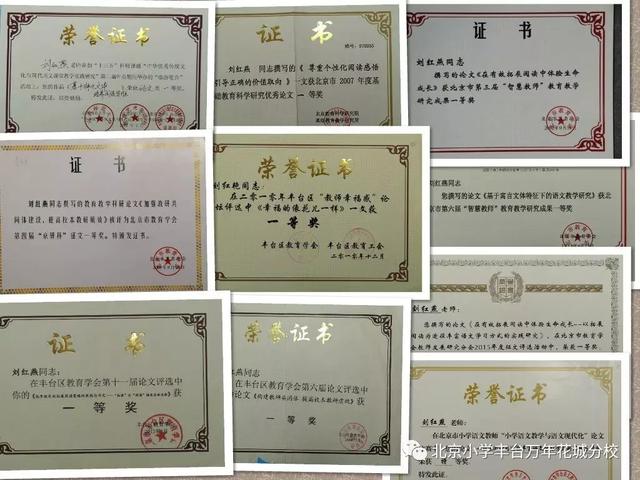 荣誉证书
刘红燕
特发此证，以资鼓励。
荣誉证书
刘红燕 同志撰写的《 尊重个性化阅读感悟
引导正确的价值取向 》一文获北京市 2007 年度基
础教育科学研究优秀论文 一 等奖
北京教育科学研究院
基础教育科学研究所
证 书
刘红燕同志
撰写的论文《在有效拓展阅读中体验生命
成长》获北京市第三届“智慧教师”教育教学
研究成果一等奖
证 书
刘红燕同志撰写的教育教学科研论文《加强教研共
同体建设，提高校本教研质效》被评为北京市教育学会
第四届“京研杯”征文一等奖。特颁发证书。
荣誉证书
刘红艳同志：
在二〇一〇年丰台区“教师幸福感”论
坛评选中《幸福的像花儿一样》一文获
一 等 奖
丰台区教育学会 丰台区教育工会
二〇一〇年十二月
刘红燕同志
您撰写的论文《基于寓言文体特征下的语文教学研究》获北
京市第六届“智慧教师”教育教学研究成果一等奖
刘红燕 老师：
您撰写的论文《在有效拓展阅读中体验生命成长——以拓展
阅读为途径丰富语文学习方式的实践研究》，在北京市教育学
会教师发展研究分会2015年度征文评选活动中，荣获一等奖。
证 书
刘红燕同志：
在丰台区教育学会第十一届论文评选中
你的
获
一 等 奖
荣誉证书
刘红燕同志：
在丰台区教育学会第六届论文评选中
获
一 等 奖
荣誉证书
刘红燕 老师：
在北京市小学语文教师“小学语文教学与语文现代化”论文
特发此证。
北京小学丰台万年花城分校